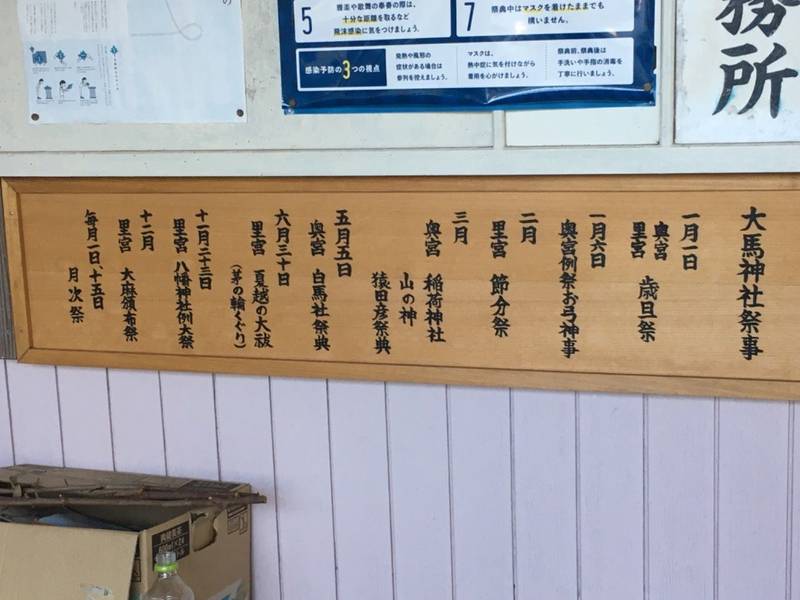 5
雅楽や歌舞の奉奏の際は、
十分な距離を取るなど
飛沫感染に気をつけましょう。
7
祭典中はマスクを着けたままでも
構いません。
感染予防の3つの視点
発熱や風邪の
症状がある場合は
参列を控えましょう。
マスクは、
熱中症に気を付けながら
着用を心がけましょう。
祭典前、祭典後は
手洗いや手指の消毒を
丁寧に行いましょう。
務所
大馬神社祭事
一月一日
奥宮
里宮 歳旦祭
一月六日
奥宮例祭お弓神事
二月
里宮 節分祭
三月
奥宮 稲荷神社
山の神
猿田彦祭典
五月五日
奥宮 白馬社祭典
六月三十日
里宮 夏越の大祓
(茅の輪くぐり)
十一月二十三日
里宮 八幡神社例大祭
十二月
里宮 大麻頒布祭
毎月一日、十五日
月次祭